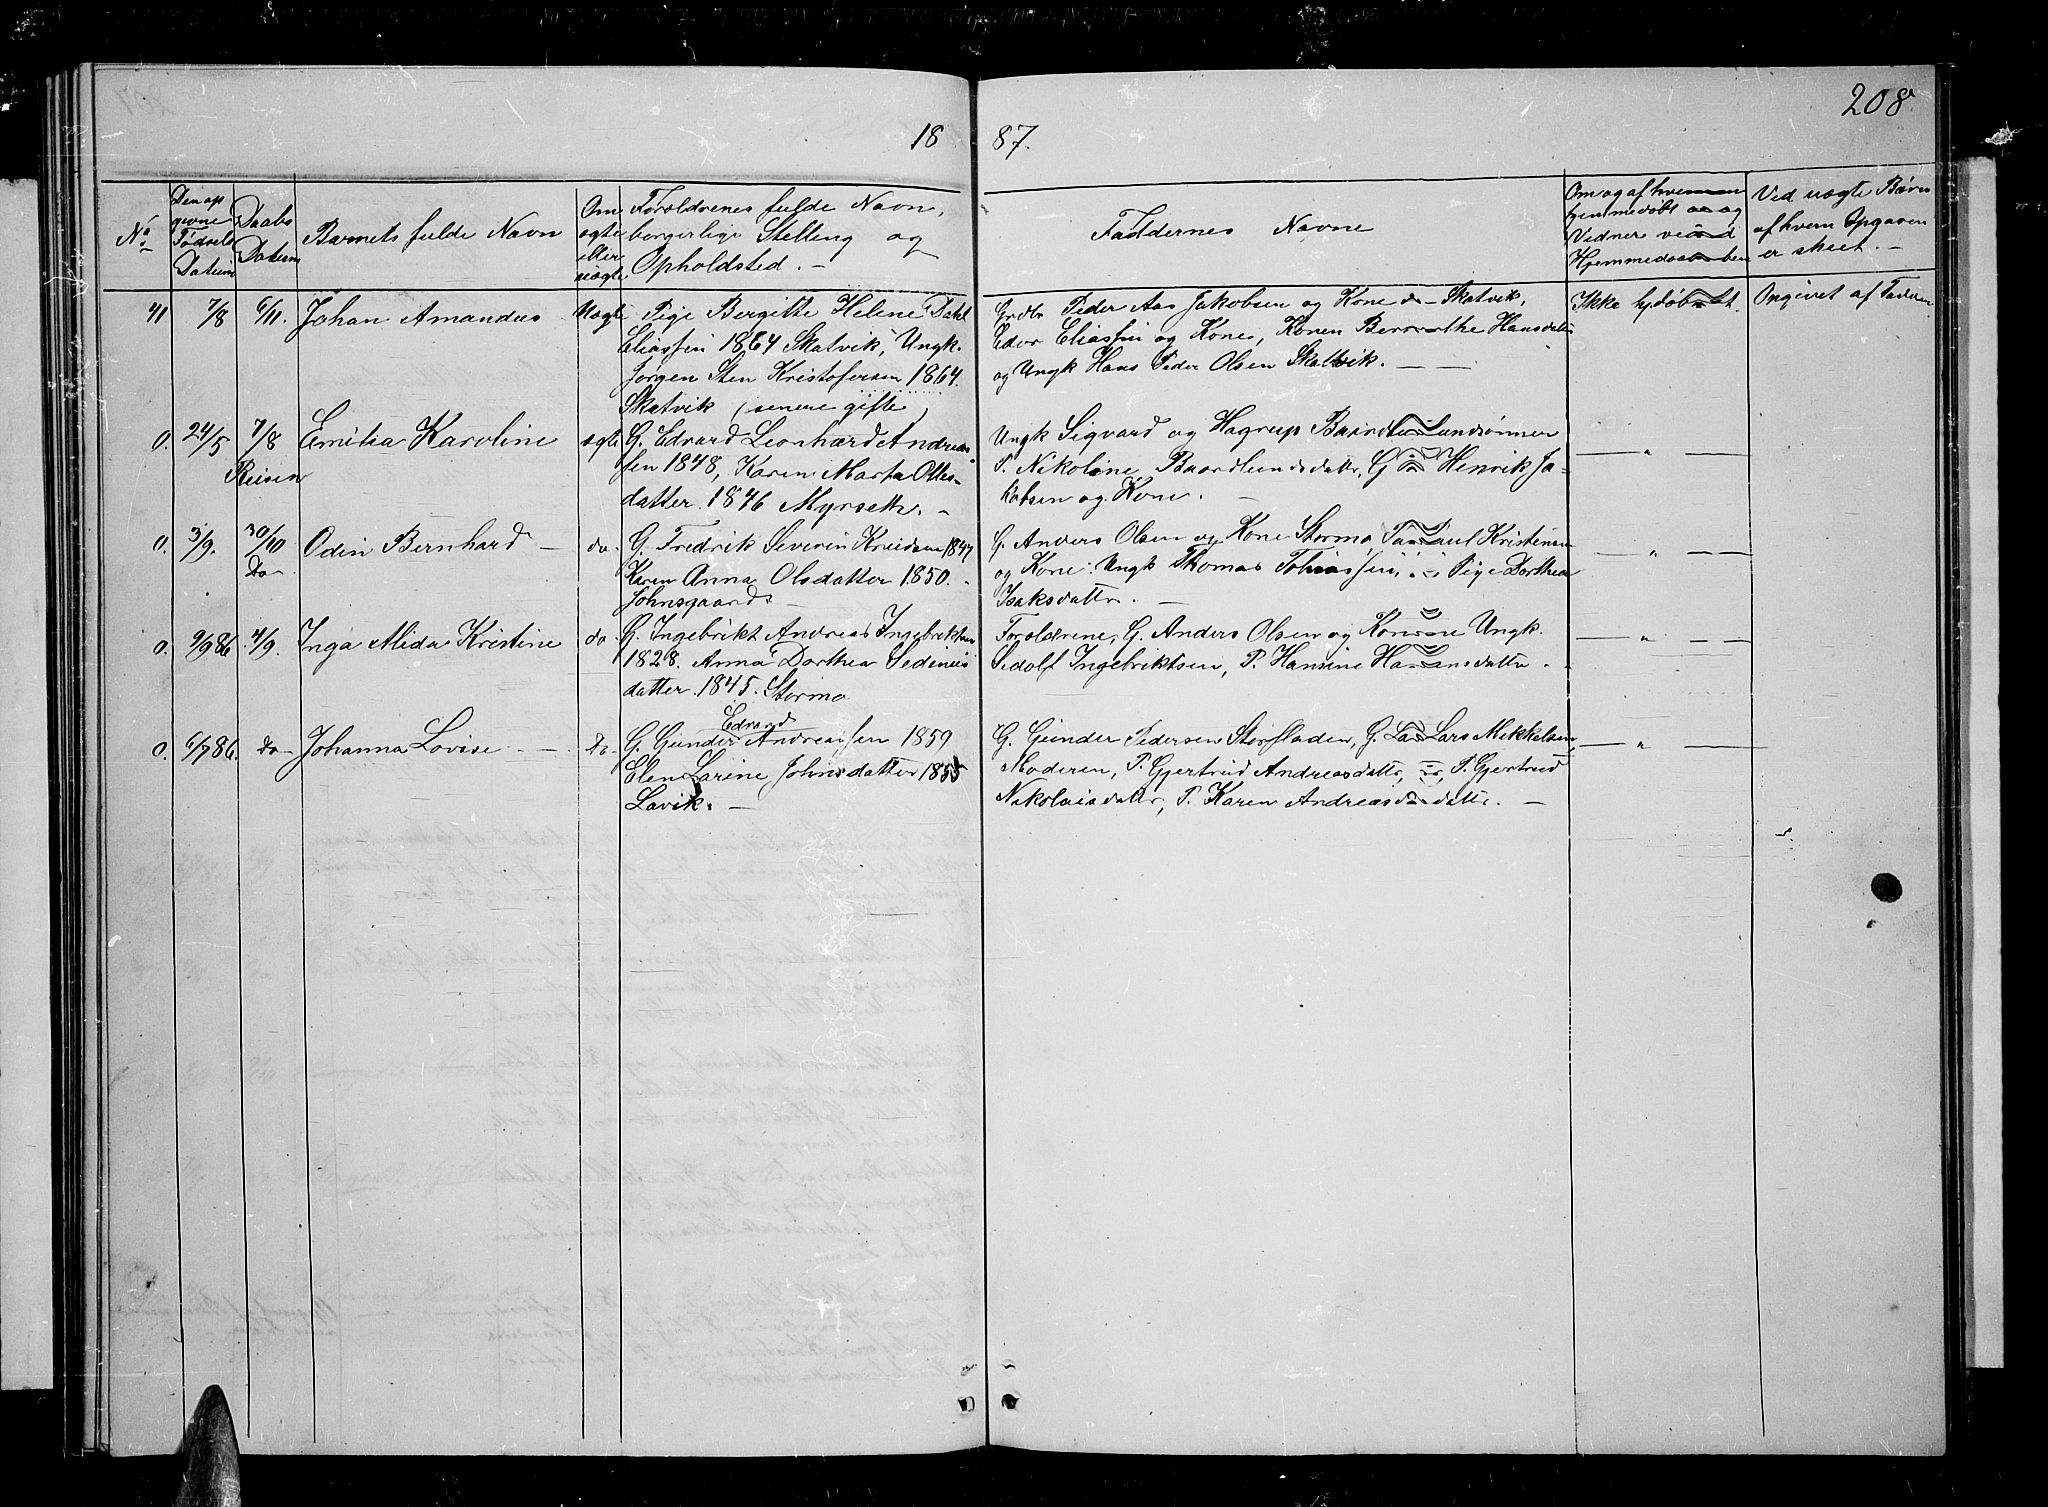 208
18 87.
No
Den op
givne
Fødsels
Datum
Daabs
Datum
Barnets fulde Navn
Om
ægte
eller
uægte
Forældrenes fulde Navn,
borgerlige Stilling og
Opholdsted. —
Faddernes Navne
Om og af hvem
hjemmedøbt og
Vidner ved
Hjemmedaaben
Ved uægte Børn
af hvem Opgaven
er skeet. —
41 7/8 6/11. Johan Amandus Uægte Pige Bergitte Helene Dahl
Eliassen 1864 Skatvik, Ungk.
Jørgen Sten Kristofersen 1864.
Skatvik (senere gifte)
Grdbr Peder Aas Jakobsen og Kone do — Skatvik,
Edvr Eliassen og Kone, Konen Hansdatter
og Ungk Hans Peder Olsen Skatvik. — —
Ikke hj.døbt. Opgivet af Faderen
0. 24/5 7/8
Reisen
Emilia Karoline ægte G. Edvard Leonhard Andreas-
sen 1848, Karen Marta Ottes-
datter 1846 Myrseth. —
Ungk Sigvard og Hagrup Baardlundsønner
P. Nikoline Baardlundsdatter, G Henrik Ja-
kobsen og Kone. —
— " —
0. 3/9. 30/10
Do
Odin Bernhard — do. G. Fredrik Severin 1847
Karen Anna Olsdatter 1850. —
Johnsgaard —
G. Anders Olsen og Kone Stormo, Paul Kristensen
og Kone. Ungk Thomas Tobiassen, Pige Dorthea
Isaksdattr. —
— " —
0. 9/9 86. 4/9. Inga Alida Kristine do G. Ingebrikt Andreas Ingebriktsen
1828. Anna Dorthea Sedenius
datter 1845. Stormo
Forældrene, G. Anders Olsen og Kone Ungk.
Sedolf Ingebriktsen, P. Hansine Hansdattr.
— " —
0. 6/7 86. do — Johanna Lovise — Do. Edvard
G. Gunder Andreassen 1859
Elen Larine Johnsdatter 1855
Lavik. —
G. Gunder Pedersen Storfladen, G. Lars Mikkelsen,
Moderen, P. Gjertrud Andreasdattr, P. Gjertrud
Nikolaisdattr, P. Karen Andreasdattr. —
— " —